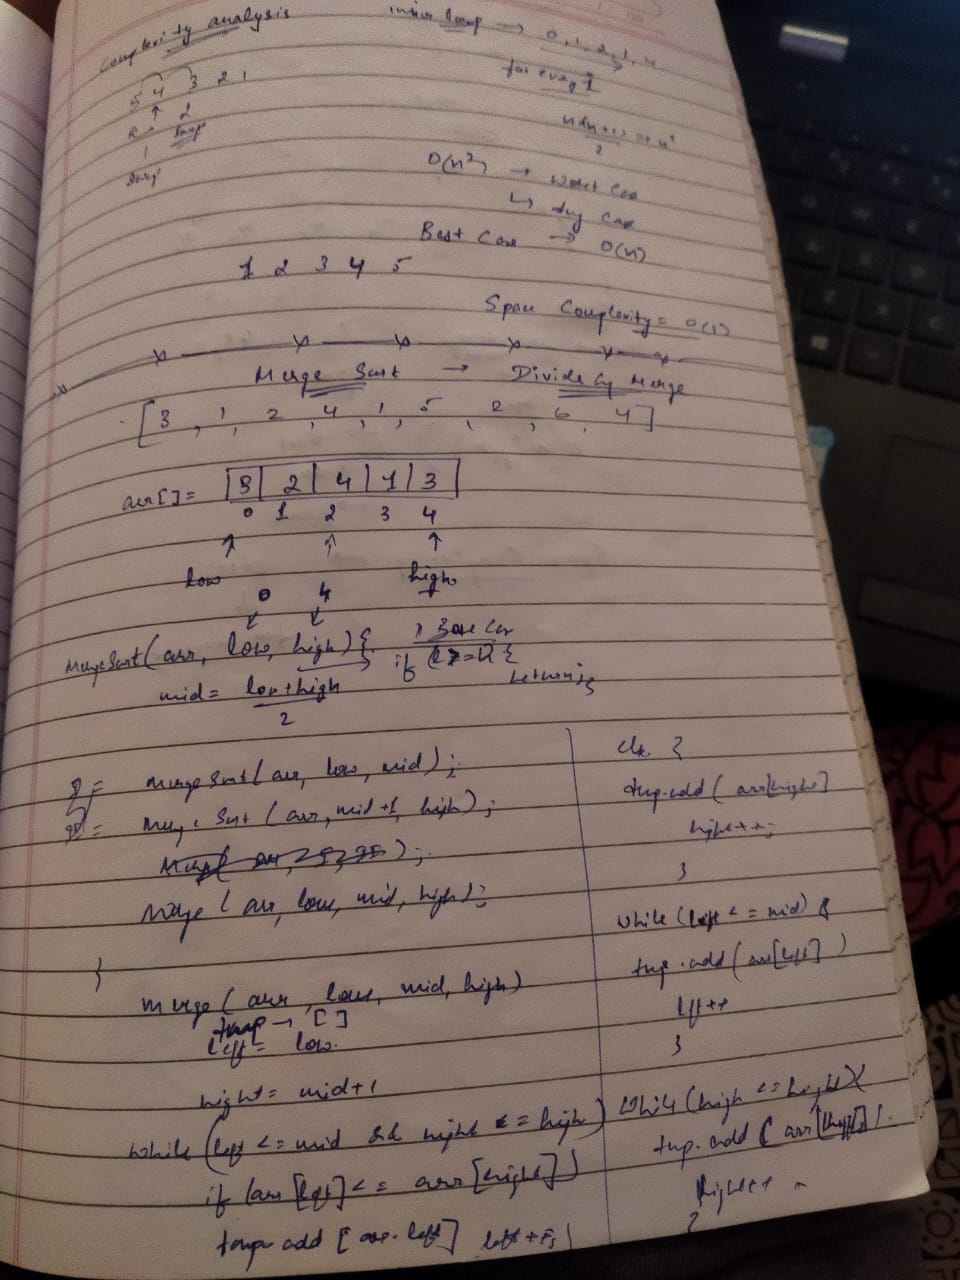 Complexity analysis
inner loop → 0, 1, 2, 3, 4
for every i
5 4 3 2 1
n(n+1)
2
O(n²) → Worst Case
↳ Avg Case
Best Case → O(n)
1 2 3 4 5
Space Complexity = O(1)
Merge Sort → Divide & Merge
[3, 1, 2, 4, 1, 5, 2, 6, 4]
arr[] = 5 2 4 1 3
0 1 2 3 4
low high
0 4
MergeSort(arr, low, high){
Base Case
if (l>=h){
return;
mid = low+high
2
MergeSort(arr, low, mid);
Merge Sort(arr, mid+1, high);
Merge(arr, low, mid, high);
}
merge(arr, low, mid, high)
temp → []
left = low
right = mid+1
while (left <= mid && right <= high)
if (arr[left] <= arr[right])
temp add [arr. left] left++;
else {
temp.add(arr[right]
right++;
}
while (left <= mid) {
temp.add(arr[left])
left++
}
while (high <= high){
temp.add(
right++
}